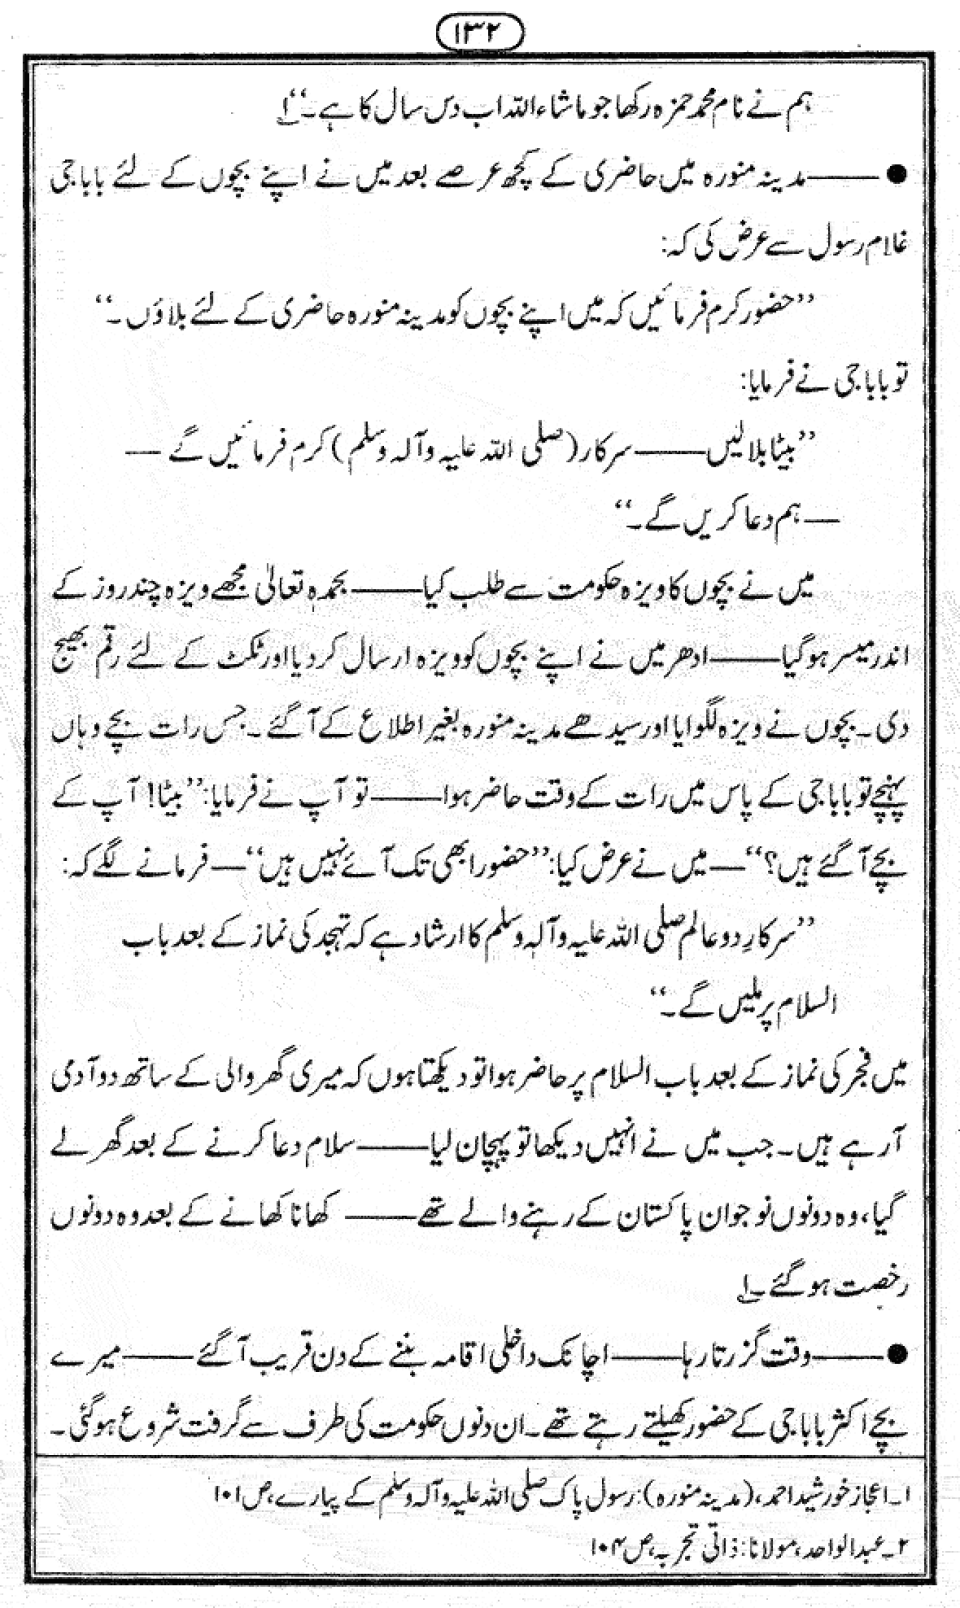 ۱۳۲
ہم نے نام محمد حمزہ رکھا جو ماشاء اللہ اب دس سال کا ہے۔“۱
●——مدینہ منورہ میں حاضری کے کچھ عرصے بعد میں نے اپنے بچوں کے لئے باباجی
غلام رسول سے عرض کی کہ:
”حضور کرم فرمائیں کہ میں اپنے بچوں کو مدینہ منورہ حاضری کے لئے بلاؤں۔“
تو باباجی نے فرمایا:
”بیٹا بلالیں——سرکار (صلی اللہ علیہ وآلہ وسلم) کرم فرمائیں گے—
—ہم دعا کریں گے۔“
میں نے بچوں کا ویزہ حکومت سے طلب کیا——بحمدہٖ تعالیٰ مجھے ویزہ چند روز کے
اندر میسر ہوگیا——ادھر میں نے اپنے بچوں کو ویزہ ارسال کر دیا اور ٹکٹ کے لئے رقم بھیج
دی۔ بچوں نے ویزہ لگوایا اور سیدھے مدینہ منورہ بغیر اطلاع کے آگئے۔ جس رات بچے وہاں
پہنچے تو باباجی کے پاس میں رات کے وقت حاضر ہوا——تو آپ نے فرمایا: ”بیٹا! آپ کے
بچے آگئے ہیں؟“—میں نے عرض کیا: ”حضور ابھی تک آئے نہیں ہیں“—فرمانے لگے کہ:
”سرکارِ دو عالم صلی اللہ علیہ وآلہٖ وسلم کا ارشاد ہے کہ تہجد کی نماز کے بعد باب
السلام پر ملیں گے۔“
میں فجر کی نماز کے بعد باب السلام پر حاضر ہوا تو دیکھتا ہوں کہ میری گھر والی کے ساتھ دو آدمی
آرہے ہیں۔ جب میں نے انہیں دیکھا تو پہچان لیا——سلام دعا کرنے کے بعد گھر لے
گیا، وہ دونوں نوجوان پاکستان کے رہنے والے تھے——کھانا کھانے کے بعد وہ دونوں
رخصت ہوگئے۔۱
●——وقت گزرتا رہا——اچانک داخلی اقامہ بننے کے دن قریب آگئے——میرے
بچے اکثر باباجی کے حضور کھیلتے رہتے تھے۔ ان دنوں حکومت کی طرف سے گرفت شروع ہوگئی۔
۱۔ اعجاز خورشید احمد، (مدینہ منورہ): رسول پاک صلی اللہ علیہ وآلہ وسلم کے پیارے، ص ۱۰۱
۲۔ عبدالواحد، مولانا: ذاتی تجربہ، ص ۱۰۴